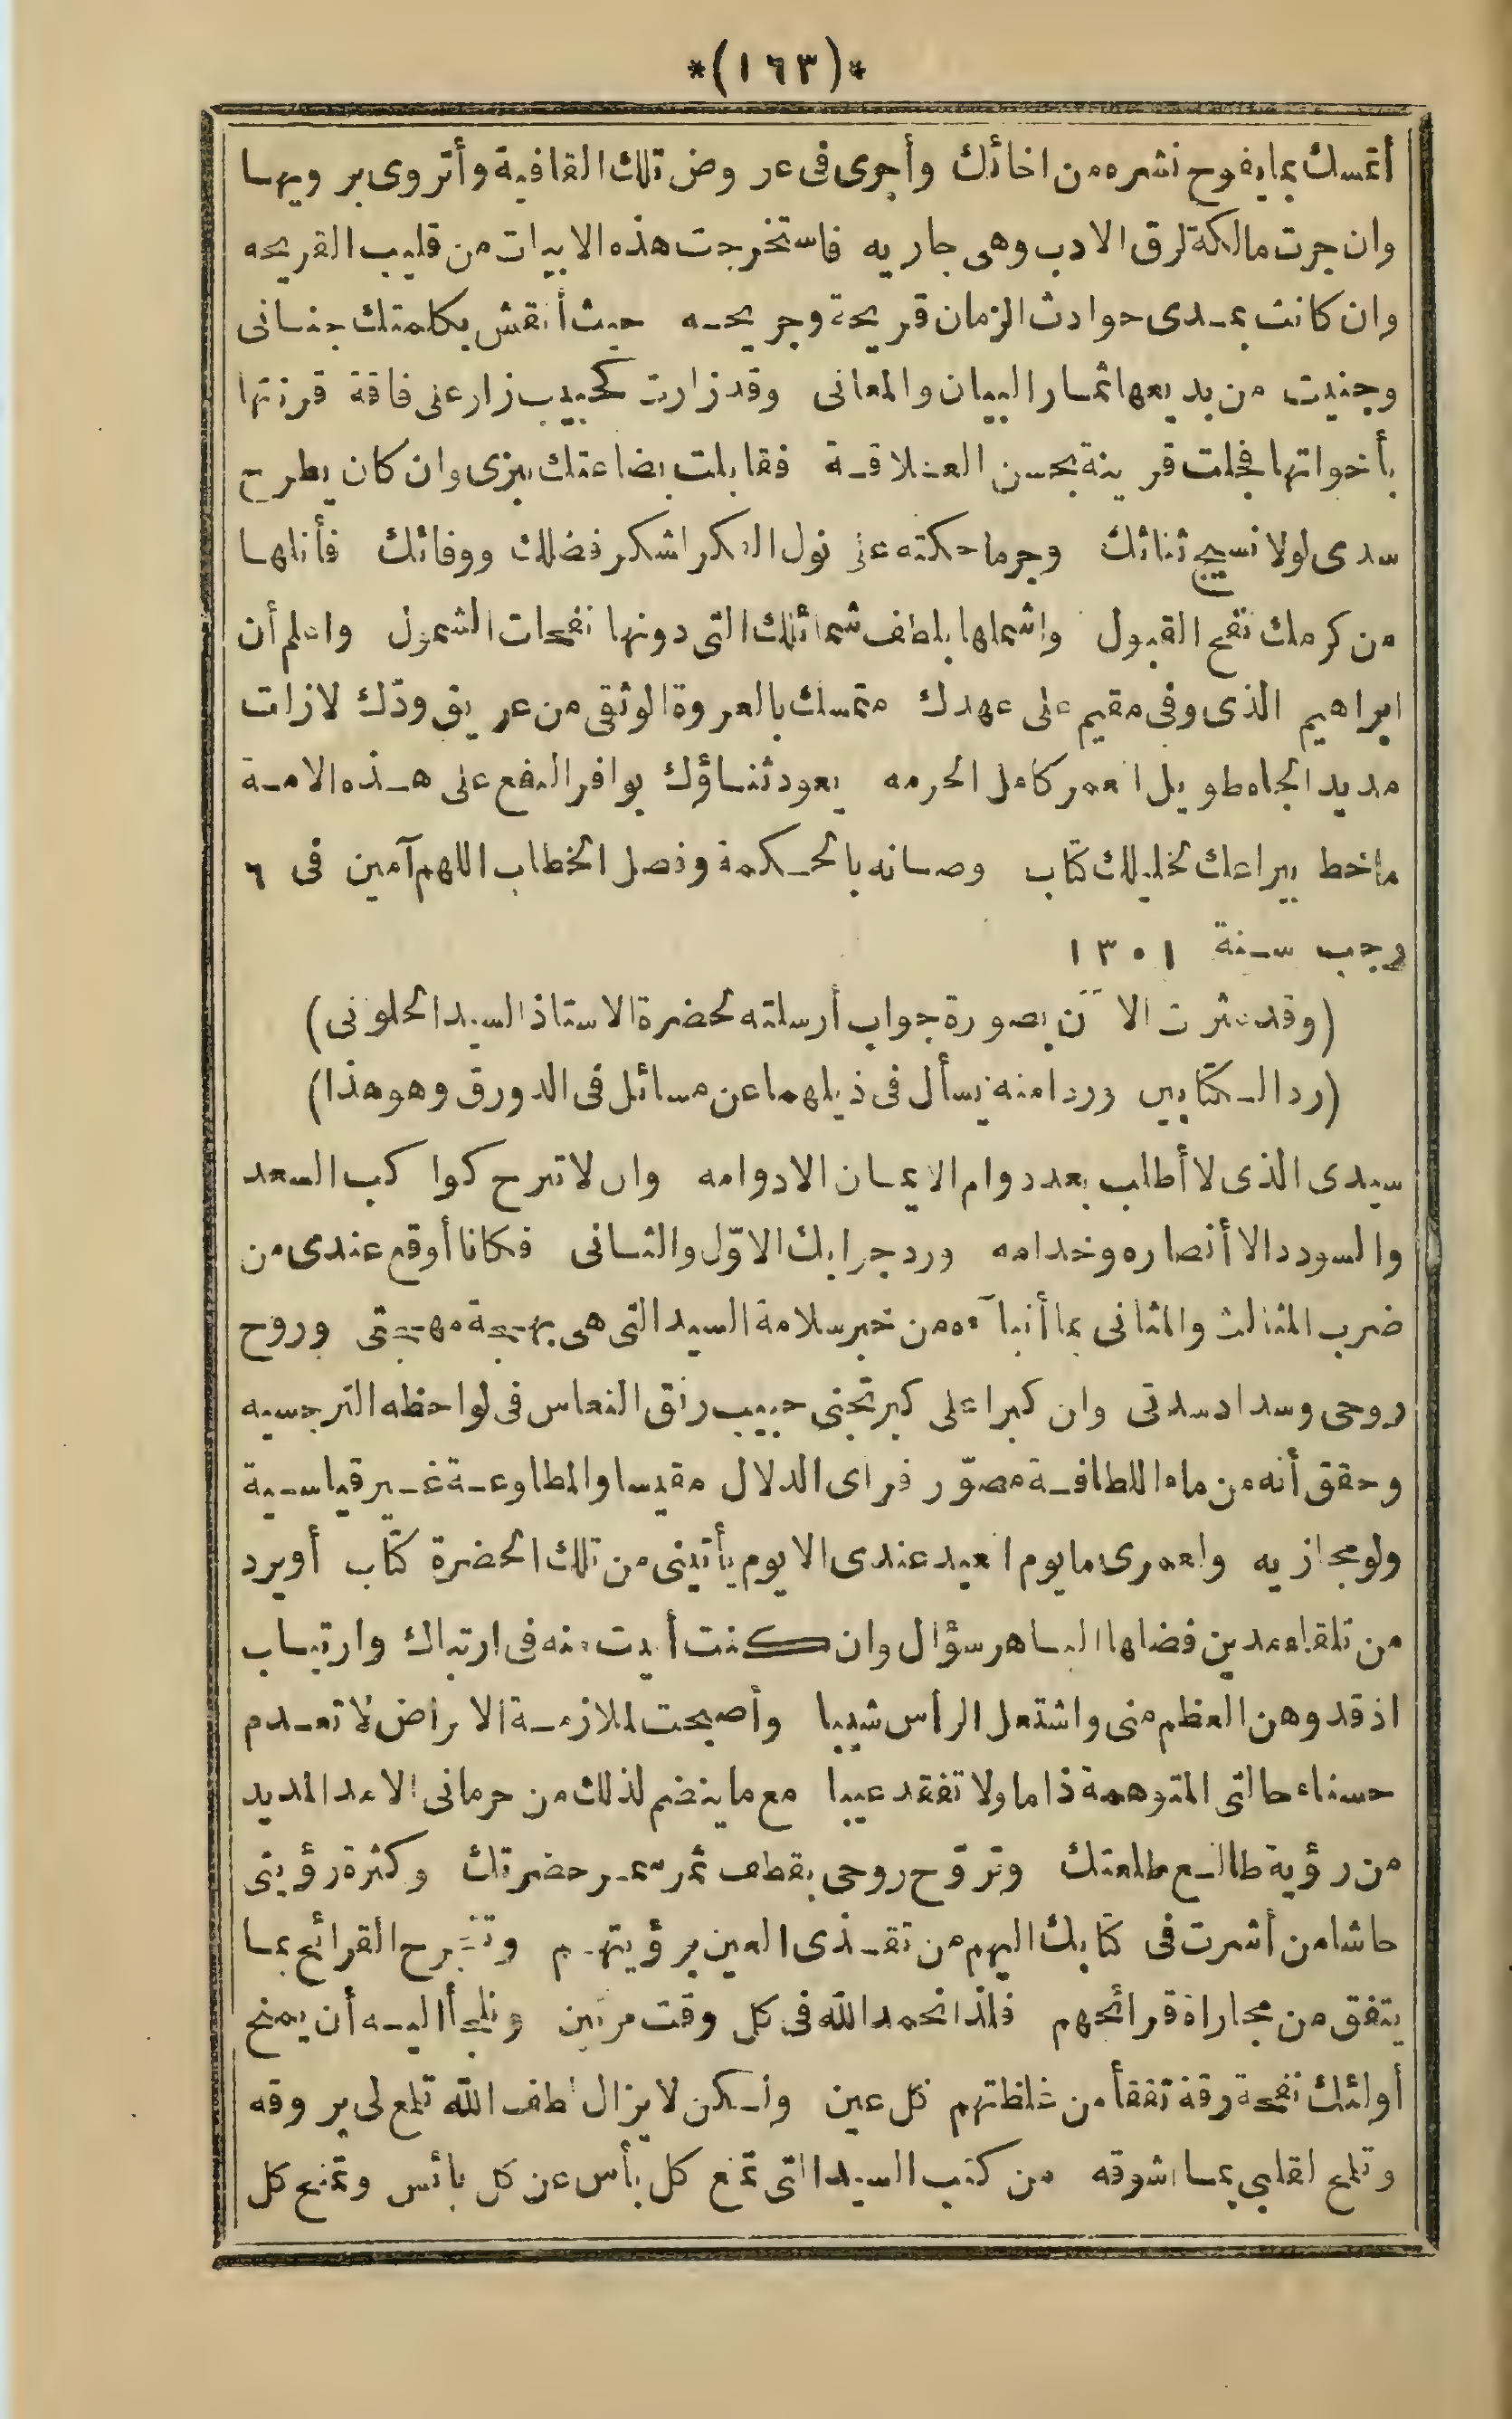 *(١٦٣)*
أتمسك بما يفوح نشره من اخائك وأجرى فى عروض تلك القافية وأتروى برويها
وان جرت مالكة لرق الادب وهى جاريه فاستخرجت هذه الابيات من قليب القريحه
وان كانت بمدى حوادث الزمان قريحة وجريحه حيث أنقش بكلمتك جنانى
وجنيت من بديعها ثمار البيان والمعانى وقد زارت كحبيب زار على فاقة قرنتها
بأخواتها فجلت قرينة بحسن العلاقة فقابلت بضاعتك ببزى وان كان يطرح
سدى لولا نسيج ثنائك وجر ما حكته على نول الفكر اشكر فضلك ووفائك فأنلها
من كرمك نفح القبول واشملها بلطف شمائلك التى دونها نفحات الشمول واعلم أن
ابراهيم الذى وفى مقيم على عهدك متمسك بالعروة الوثقى من عريق ودّك لازلت
مديد الجاه طويل العمر كامل الحرمه يعود ثناؤك بوافر النفع على هذه الامة
ما خط بيراعك لخليلك كتاب وصانه بالحكمة وفصل الخطاب اللهم آمين فى ٦
رجب سنة ١٣٠١
(وقد عثرت الآن بصورة جواب أرسلته لحضرة الاستاذ السيد الحلونى)
(رد الكتابين وردا منه يسأل فى ذيلهما عن مسائل فى الدورق وهو هذا)
سيدى الذى لا أطلب بعد دوام الايمان الا دوامه وان لا تبرح كواكب السعد
والسودد الا أنصاره وخدامه ورد جوابك الاوّل والثانى فكانا أوقع عندى من
ضرب المثالث والمثانى بما أنبآه من خبر سلامة السيد التى هى بهجة مهجتى وروح
روحى وسداد سدتى وان كبرا على كبر تجنى حبيب رنق النعاس فى لواحظه النرجسيه
وحقق أنه من ماء اللطافة مصوّر فراى الدلال مقيسا والمطاوعة غير قياسية
ولو مجازيه ولعمرى ما يوم العيد عندى الا يوم يأتينى من تلك الحضرة كتاب أويرد
من تلقاء مدين فضلها الباهر سؤال وان كنت أبيت منه فى ارتباك وارتياب
اذ قد وهن العظم منى واشتعل الرأس شيبا وأصبحت لملازمة الامراض لا تعدم
حسناء حالتى المتوهمة ذاما ولا تفقد عيبا مع ما ينضم لذلك من حرمانى الامد المديد
من رؤية طالع طلعتك وتروّح روحى بقطف ثمر سمر حضرتك وكثرة رؤيتى
حاشا من أشرت فى كتابك اليهم من تقذى العين برؤيتهم وتنجرح القرائح بما
يتفق من مجاراة قرائحهم فلذا نحمد الله فى كل وقت مرتين ونلجأ اليه أن يمنح
أولئك نفحة رقة تفقأ من غلظتهم كل عين ولكن لا يزال لطف الله تلمع لى بروقه
وتلمح لقلبى بما اشوقه من كتب السيد التى تمنع كل بأس عن كل بائس وتمنح كل